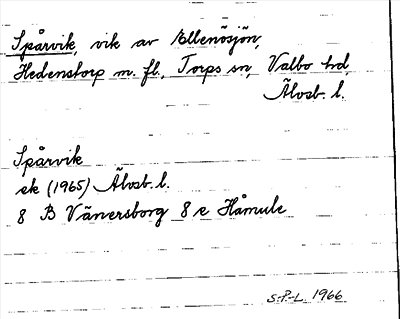 Spårvik, vik av Ellenösjön,
Hedenstorp m. fl., Torps sn, Valbo hd,
Älvsb. l.
Spårvik
ek (1965) Älvsb. l.
8 B Vänersborg 8 e Håmule
S-P-L 1966